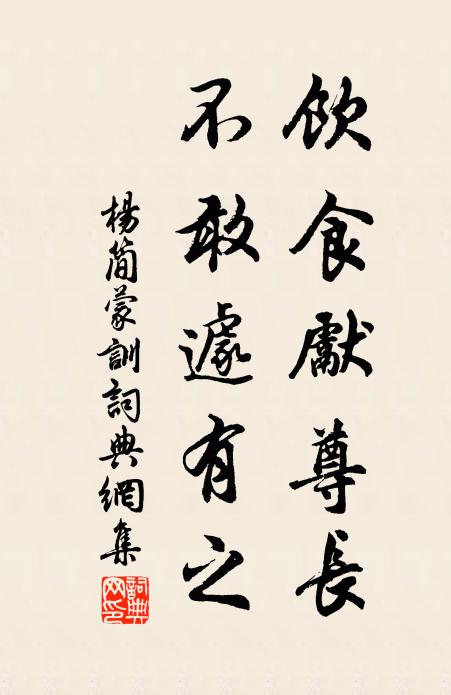 飲食獻尊長
不敢遽有之
楊簡蒙訓詞典網集
詞典
网印